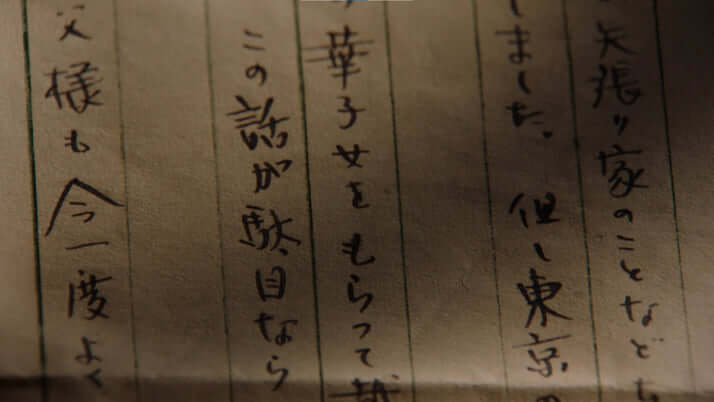 矢張り家のことなども
しました。但し東京の
華子女をもらって
この話が駄目なら
父様も今一度よく